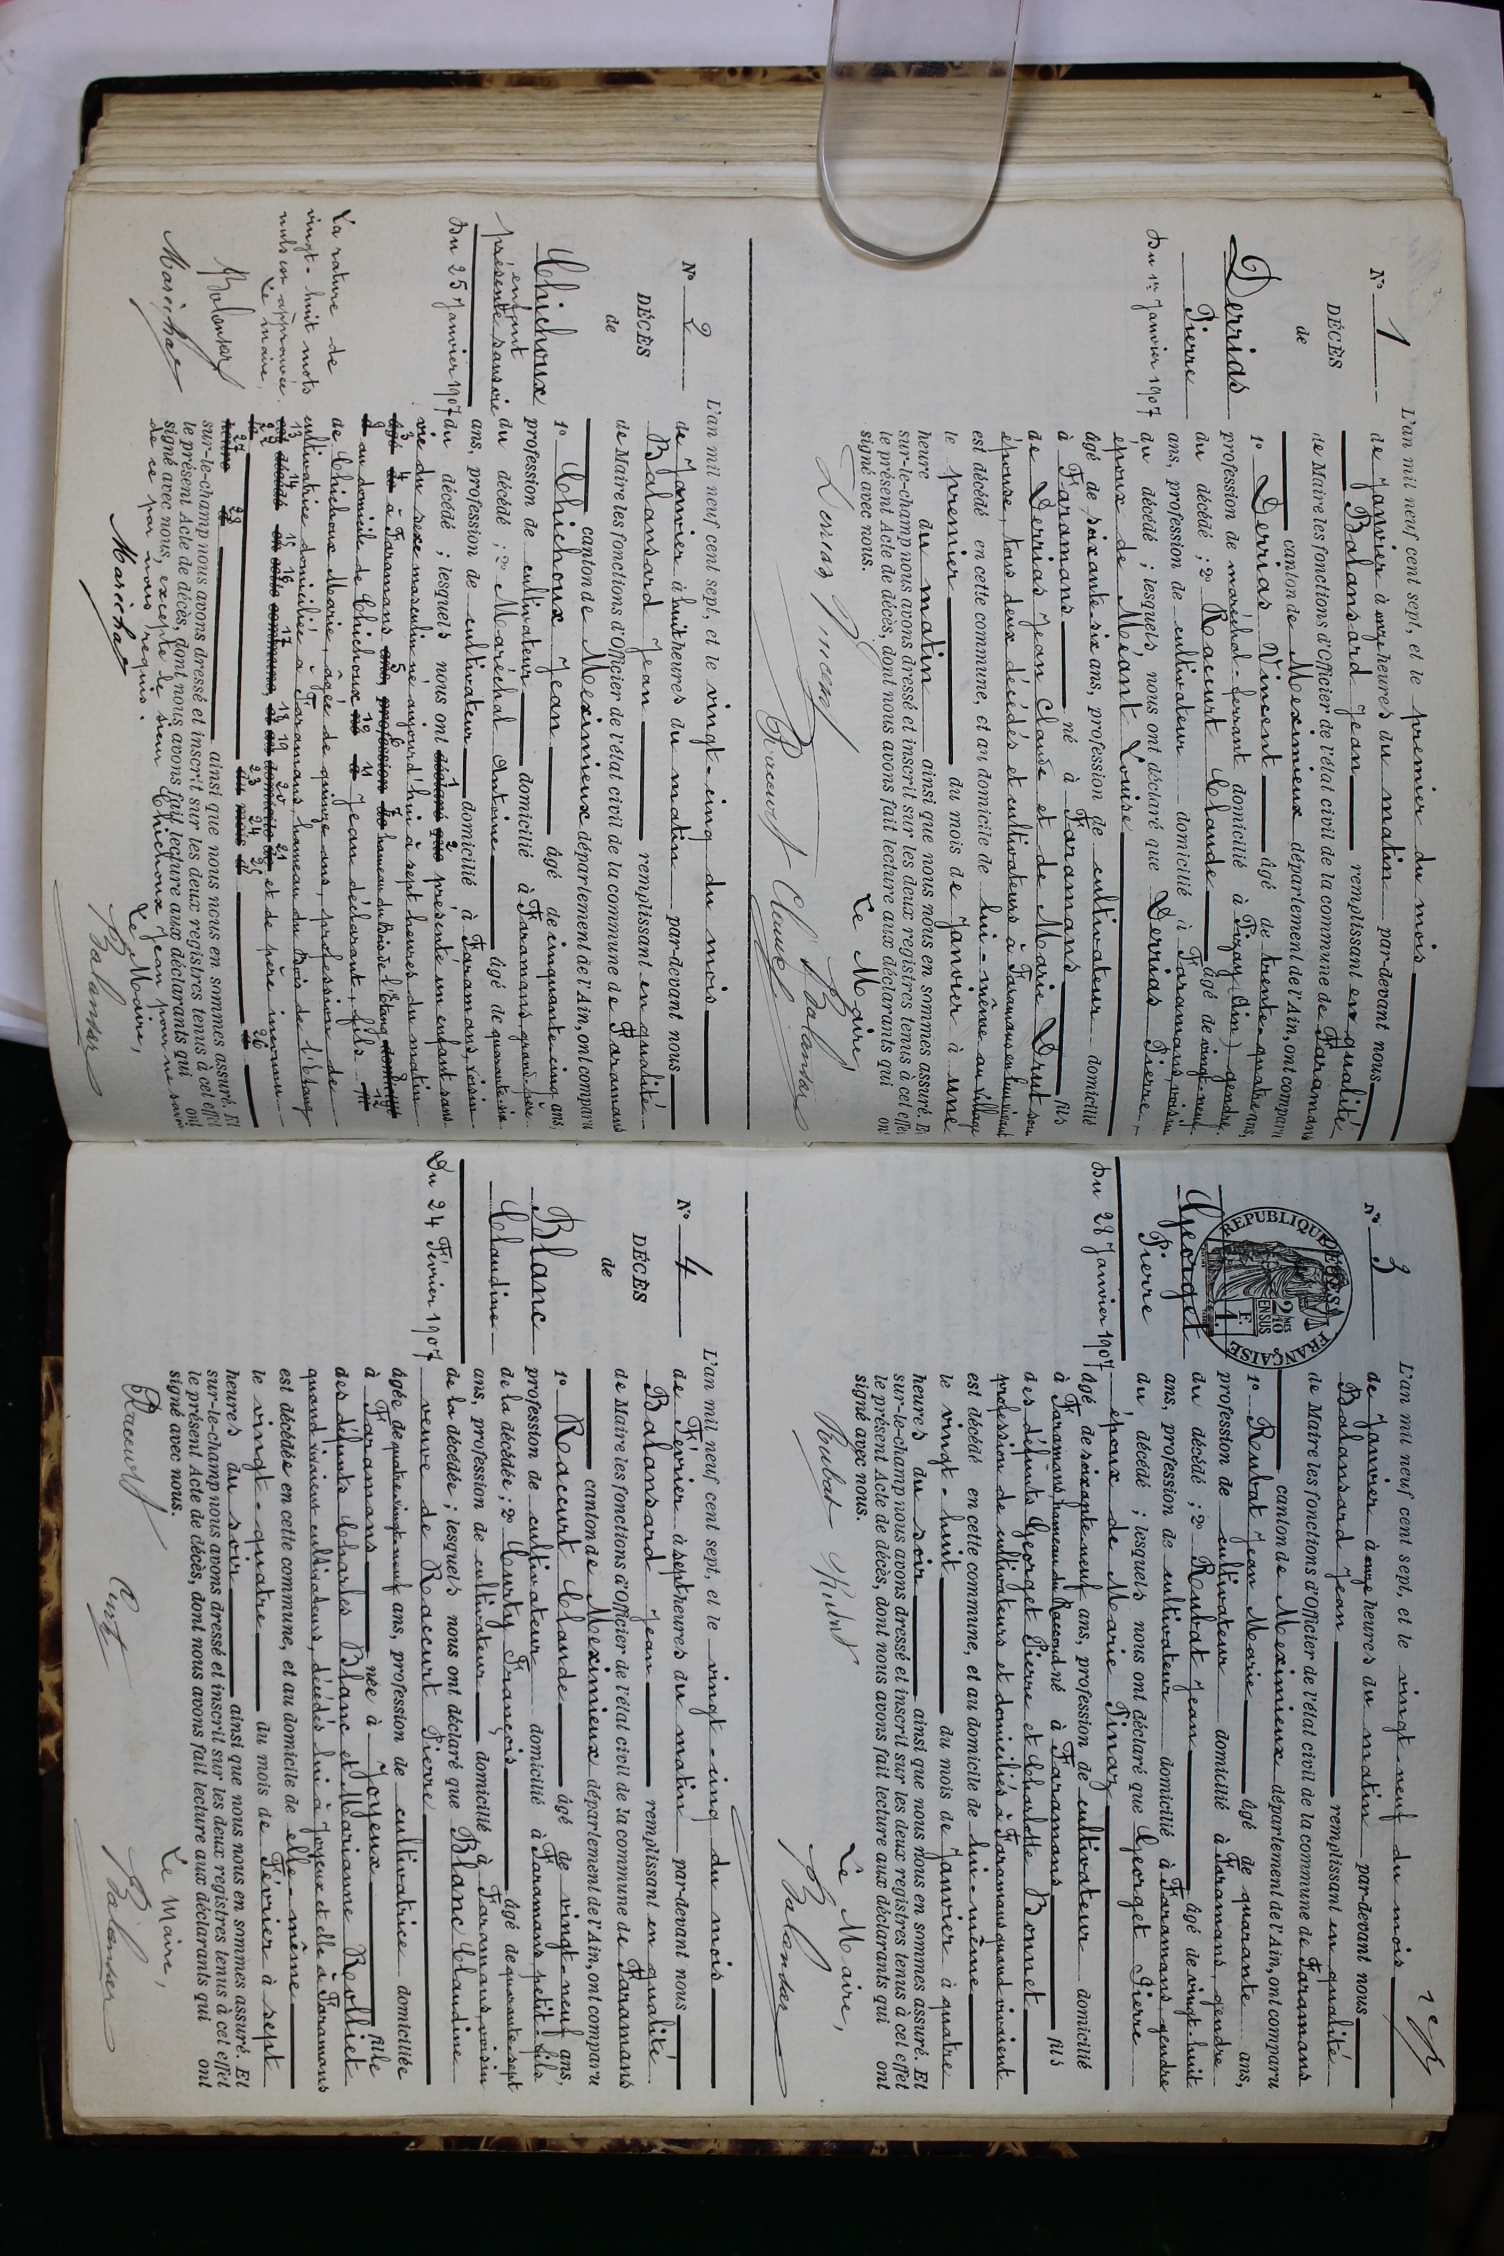 N° 1
DÉCÈS
de
Derrias
Pierre
Du 1er Janvier 1907
L'an mil neuf cent sept, et le premier du mois
de Janvier à onze heures du matin par-devant nous
Balansard Jean remplissant en qualité
de Maire les fonctions d'Officier de l'état civil de la commune de Faramans
canton de Meximieux département de l'Ain, ont comparu
1° Derrias Vincent âgé de trente-quatre ans,
profession de maréchal-ferrant domicilié à Pizay (Ain) gendre
du décédé ; 2° Raccurt Claude âgé de vingt-neuf
ans, profession de cultivateur domicilié à Faramans, voisin
du décédé ; lesquels nous ont déclaré que Derrias Pierre,
époux de Méant Louise
âgé de soixante six ans, profession de cultivateur domicilié
à Faramans né à Faramans fils
de Derrias Jean Claude et de Marie Drut son
épouse, tous deux décédés et cultivateurs à Faramans en leur vivant
est décédé en cette commune, et au domicile de lui-même au village
le premier du mois de Janvier à une
heure du matin ainsi que nous nous en sommes assuré. Et
sur-le-champ nous avons dressé et inscrit sur les deux registres tenus à cet effet
le présent Acte de décès, dont nous avons fait lecture aux déclarants qui ont
signé avec nous.
Le Maire,
Derrias Vincent Raccurt Claude Balansard
N° 2
DÉCÈS
de
Chichoux
enfant
présenté sans vie
Du 25 Janvier 1907
La rature de
vingt-huit mots
nuls est approuvée.
Le maire,
Balansard
Maréchal
L'an mil neuf cent sept, et le vingt-cinq du mois
de Janvier à huit heures du matin par-devant nous
Balansard Jean remplissant en qualité
de Maire les fonctions d'Officier de l'état civil de la commune de Faramans
canton de Meximieux département de l'Ain, ont comparu
1° Chichoux Jean âgé de cinquante-cinq ans,
profession de cultivateur domicilié à Faramans, grand-père
du décédé ; 2° Maréchal Antoine âgé de quarante-six
ans, profession de cultivateur domicilié à Faramans, voisin
du décédé ; lesquels nous ont déclaré que présenté un enfant sans
vie du sexe masculin né aujourd'hui à sept heures du matin
âgé de à Faramans ans, profession de hameau du Bois de l'Etang domicilié
à au domicile de Chichoux né à Jean déclarant, fils
de Chichoux Marie, âgée de quinze ans, profession de
cultivatrice domiciliée à Faramans, hameau du Bois de l'Etang
est décédé en cette commune, et au domicile de et de père inconnu
le du mois de à
heure ainsi que nous nous en sommes assuré. Et
sur-le-champ nous avons dressé et inscrit sur les deux registres tenus à cet effet
le présent Acte de décès, dont nous avons fait lecture aux déclarants qui ont
signé avec nous, excepté le sieur Chichoux Jean pour ne savoir
de ce par nous requis.
Le Maire,
Maréchal Balansard
N° 3
Georget
Pierre
Du 28 Janvier 1907
RÉPUBLIQUE FRANÇAISE
2/10 EN SUS
1 F.
L'an mil neuf cent sept, et le vingt-neuf du mois
de Janvier à onze heures du matin par-devant nous
Balansard Jean remplissant en qualité
de Maire les fonctions d'Officier de l'état civil de la commune de Faramans
canton de Meximieux département de l'Ain, ont comparu
1° Rubat Jean Marie âgé de quarante ans,
profession de cultivateur domicilié à Faramans, gendre
du décédé ; 2° Rubat Jean âgé de vingt-huit
ans, profession de cultivateur domicilié à Faramans, gendre
du décédé ; lesquels nous ont déclaré que Georget Pierre
époux de Marie Pinaz
âgé de soixante neuf ans, profession de cultivateur domicilié
à Faramans, hameau du Raccord né à Faramans fils
des défunts Georget Pierre et Charlotte Bonnet
profession de cultivateurs et domiciliés à Faramans quand vivaient
est décédé en cette commune, et au domicile de lui-même
le vingt-huit du mois de Janvier à quatre
heures du soir ainsi que nous nous en sommes assuré. Et
sur-le-champ nous avons dressé et inscrit sur les deux registres tenus à cet effet
le présent Acte de décès, dont nous avons fait lecture aux déclarants qui ont
signé avec nous.
Le Maire,
Rubat Rubat Balansard
N° 4
DÉCÈS
de
Blanc
Claudine
Du 24 Février 1907
L'an mil neuf cent sept, et le vingt-cinq du mois
de Février à sept heures du matin par-devant nous
Balansard Jean remplissant en qualité
de Maire les fonctions d'Officier de l'état civil de la commune de Faramans
canton de Meximieux département de l'Ain, ont comparu
1° Raccurt Claude âgé de vingt-neuf ans,
profession de cultivateur domicilié à Faramans, petit-fils
de la décédée ; 2° Curty François âgé de quarante-sept
ans, profession de cultivateur domicilié à Faramans, voisin
de la décédée ; lesquels nous ont déclaré que Blanc Claudine
veuve de Raccurt Pierre
âgée de quatre-vingt-neuf ans, profession de cultivatrice domiciliée
à Faramans née à Joyeux fille
des défunts Charles Blanc et Marianne Rolliet
quand vivaient cultivateurs, décédés lui à Joyeux et elle à Faramans
est décédée en cette commune, et au domicile de elle-même
le vingt-quatre du mois de Février à sept
heures du soir ainsi que nous nous en sommes assuré. Et
sur-le-champ nous avons dressé et inscrit sur les deux registres tenus à cet effet
le présent Acte de décès, dont nous avons fait lecture aux déclarants qui ont
signé avec nous.
Le Maire,
Raccurt Curty Balansard